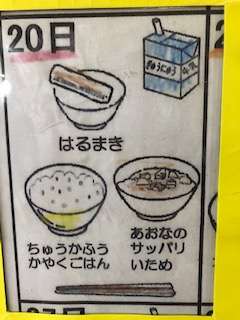 20日
ぎゅうにゅう
はるまき
ちゅうかふう
かやくごはん
あおなの
サッパリ
いため